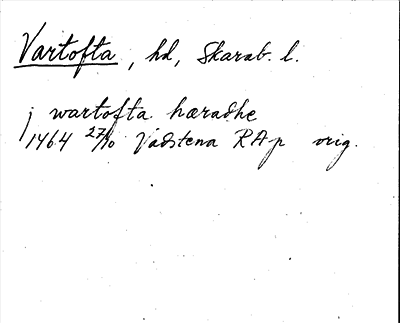 Vartofta, hd, Skarab. l.
j wartofta hæradhe
1464 27/10 Vadstena RAp orig.